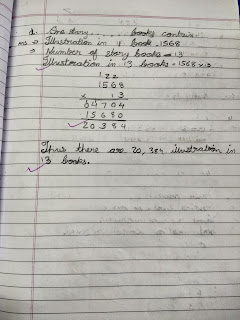 d. One story ........ books contain
Ans → Illustration in 1 book = 1568
→ Number of story books = 13
Illustration in 13 books = 1568 × 13
1 2 2
1568
× 13
04704
15680
20384
Thus there are 20,384 illustration in
13 books.